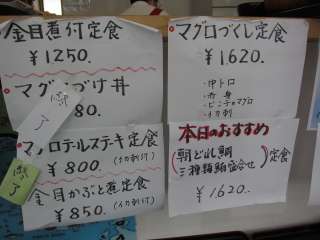 金目煮付定食
¥1250.
マグロづけ丼
80.
了
マグロテールステーキ定食
¥800.(イカ刺付)
金目かぶと煮定食
¥850.(イカ刺付)
了
マグロづくし定食
¥1,620.
・中トロ
・赤身
・ビンチョウマグロ
・イカ刺
本日のおすすめ
朝どれ鯛
三種類鮨盛合せ
定食
¥1,620.